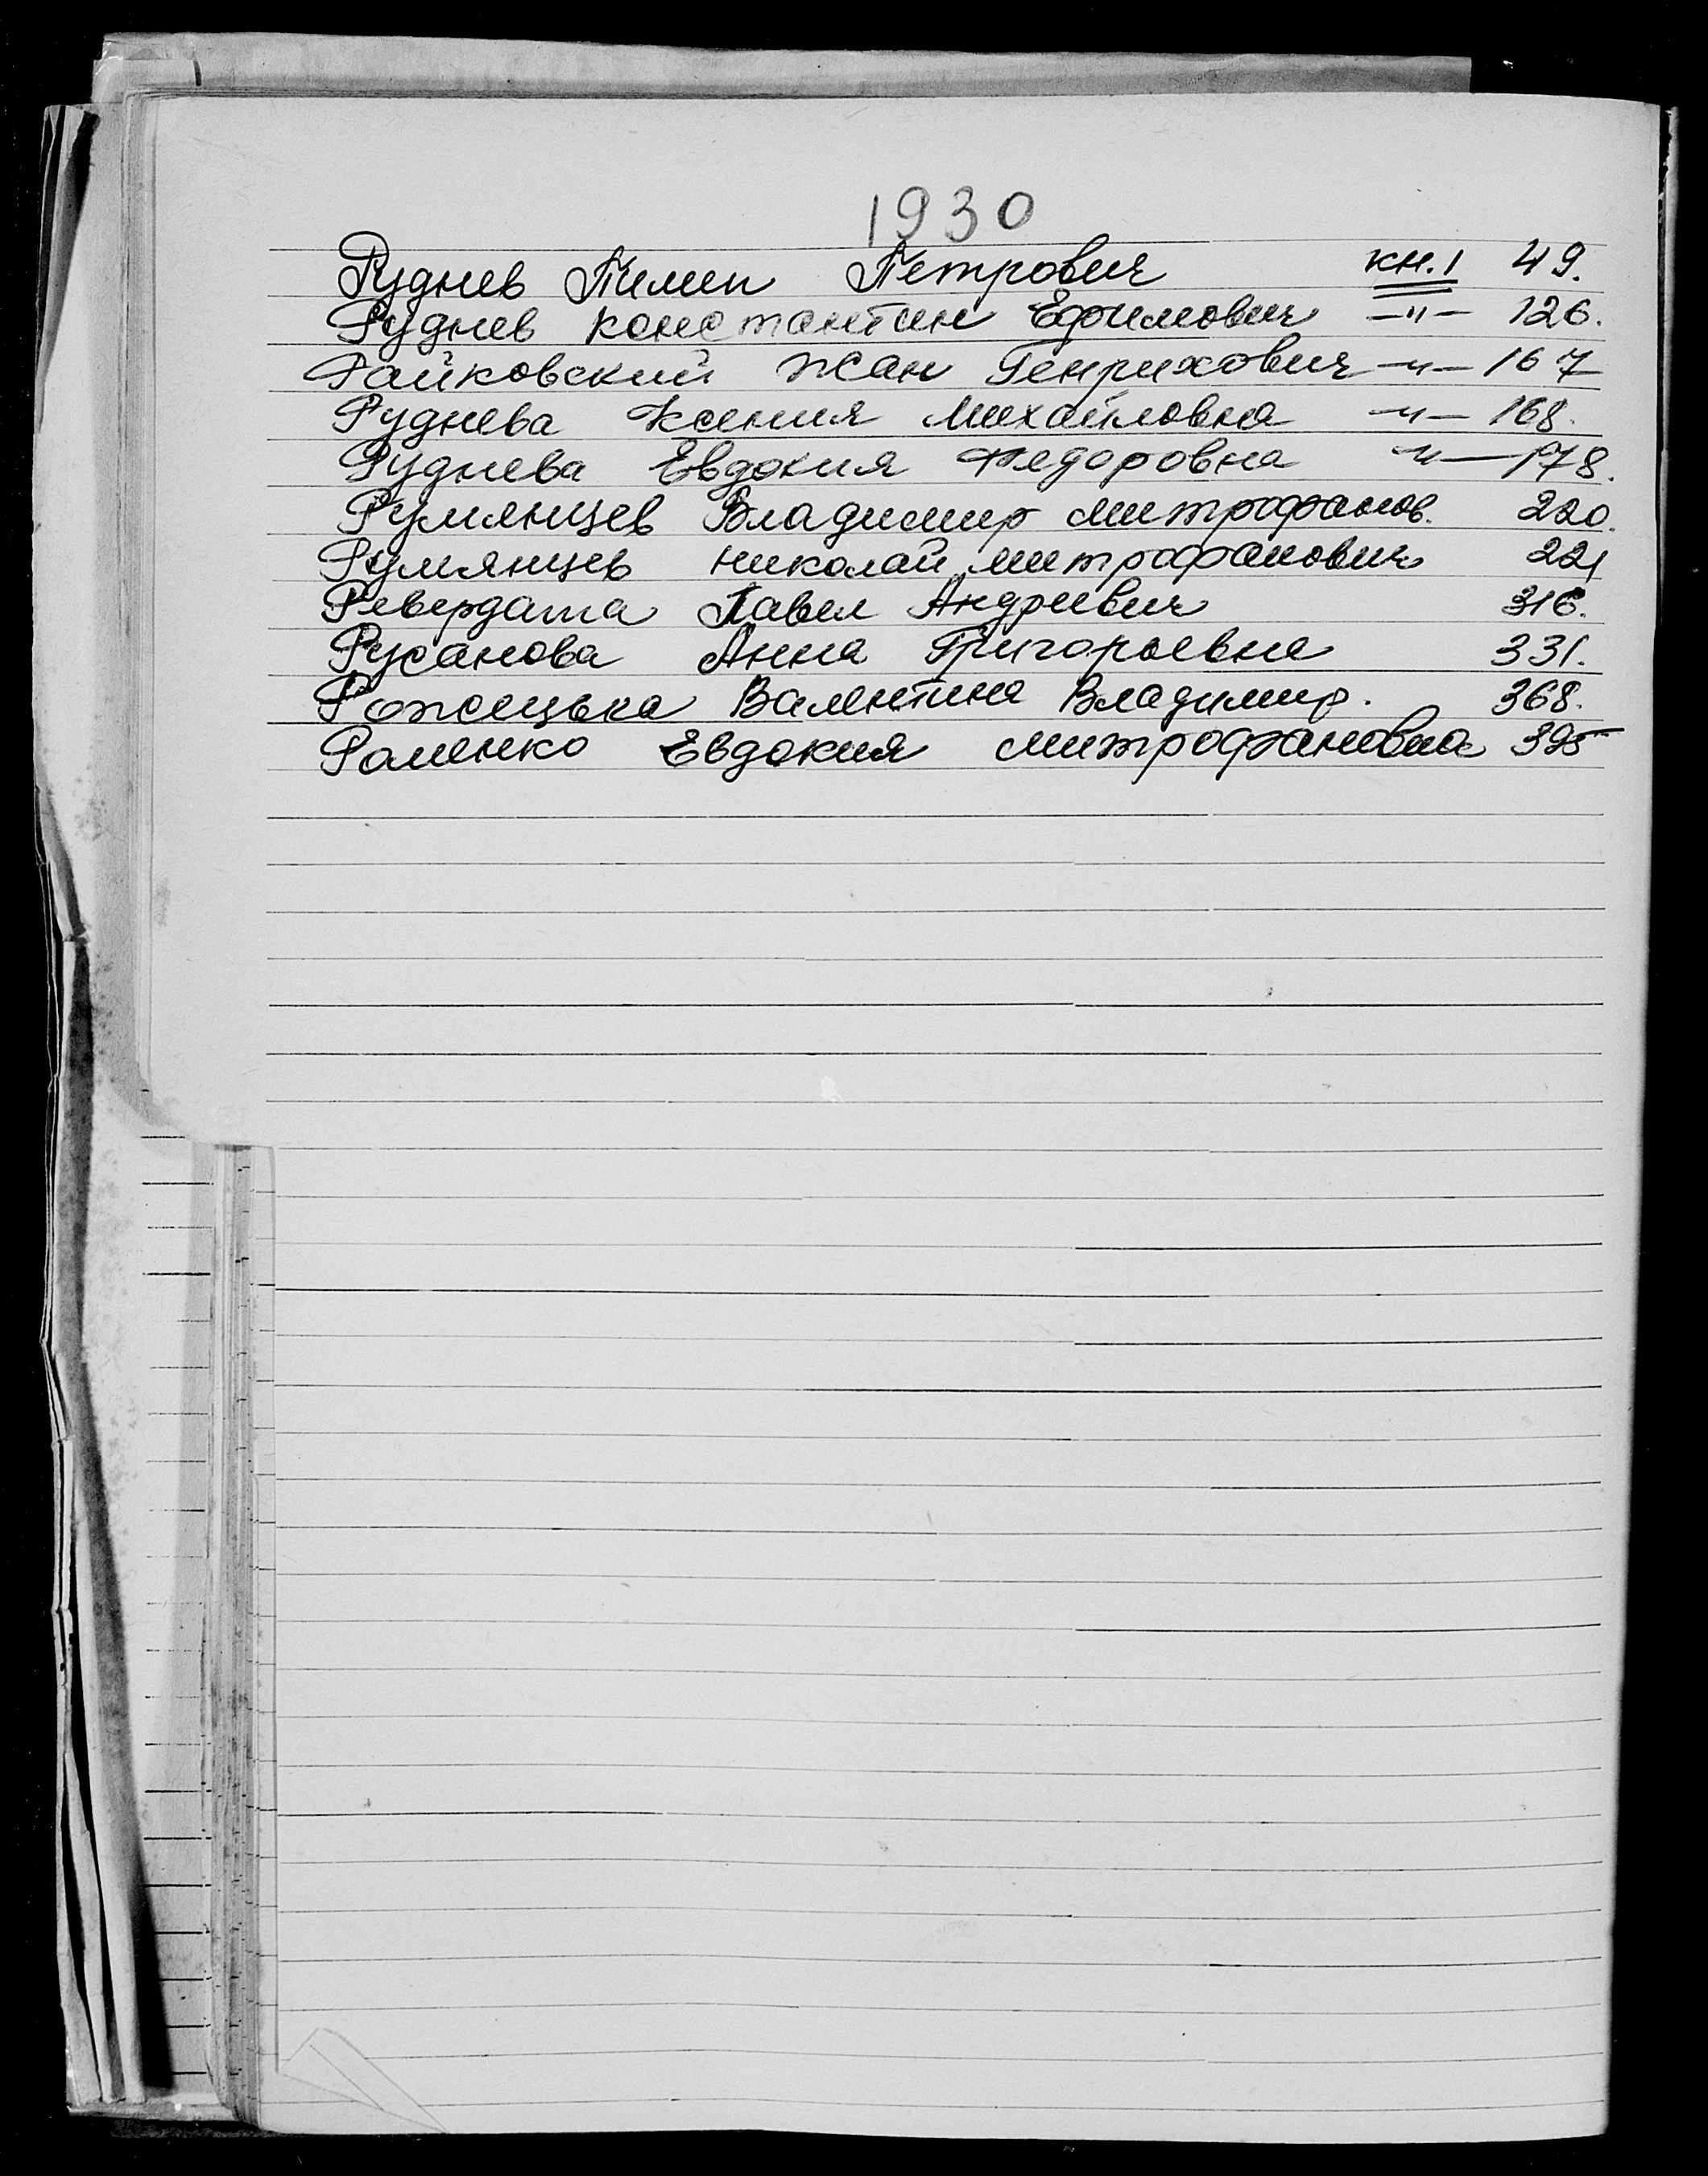 1930
Руднев Пимен Петрович кн.1 49.
Руднев Константин Ефимович —"— 126.
Райковский Жан Генрихович —"— 167
Руднева Ксения Михайловна —"— 168.
Руднева Евдокия Федоровна —"— 178.
Румянцев Владимир Митрофанов. 220.
Румянцев Николай Митрофанович 221
Ревердата Павел Андреевич 316.
Русанова Анна Григорьевна 331.
Рожецька Валентина Владимир. 368.
Раменко Евдокия Митрофановна 395